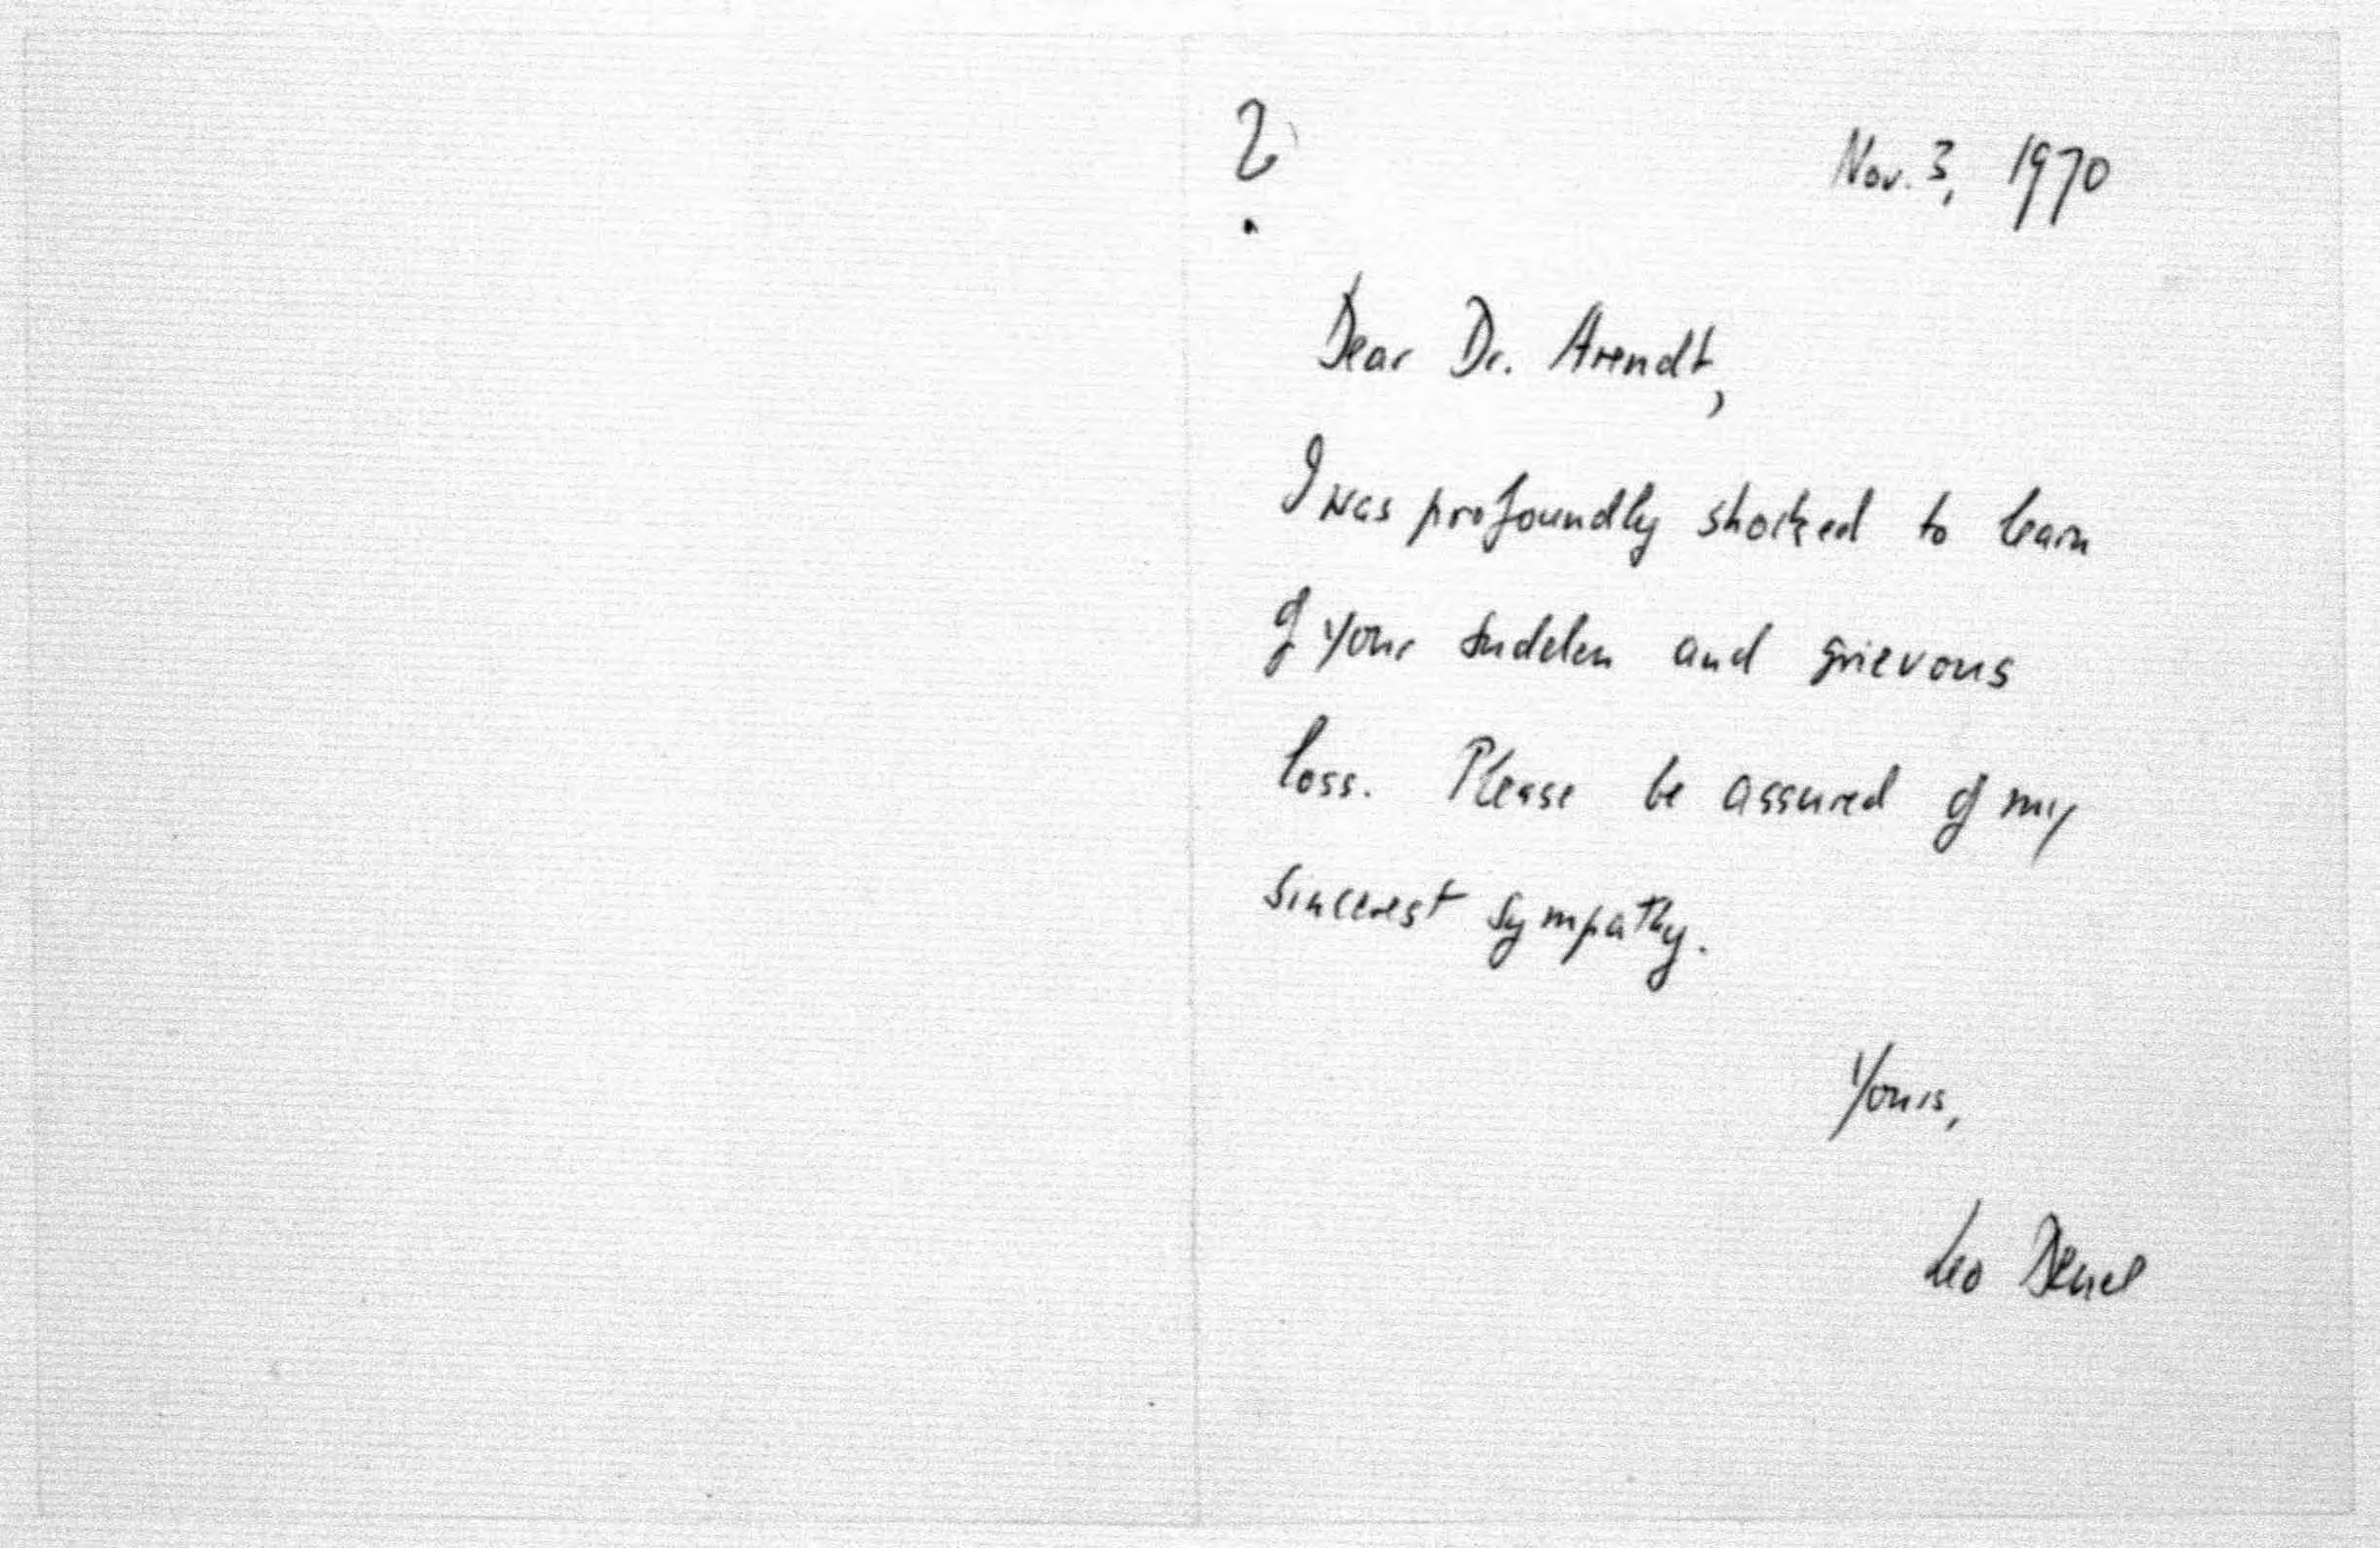 ?
Nov. 3, 1970
Dear Dr. Arendt,
I was profoundly shocked to learn
of your sudden and grievous
loss. Please be assured of my
sincerest sympathy.
Yours,
Leo